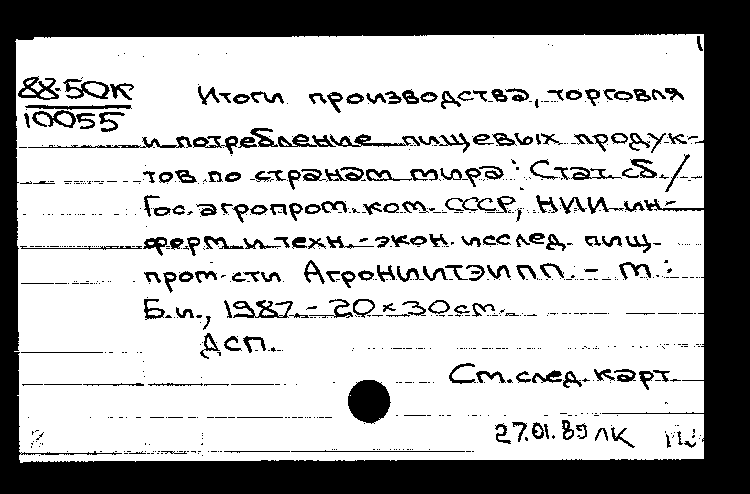 88-5OK
10055
Итоги производства, торговля
и потребление пищевых продук-
тов по странам мира: Стат. сб./
Гос. агропром. ком. СССР, НИИ ин-
форм и техн.-экон. исслед. пищ.
пром-сти АгроНИИТЭИПП. - М.:
Б.и., 1987. - 20×30см.
ДСП.
См. след. карт.
27.01.89 ЛК